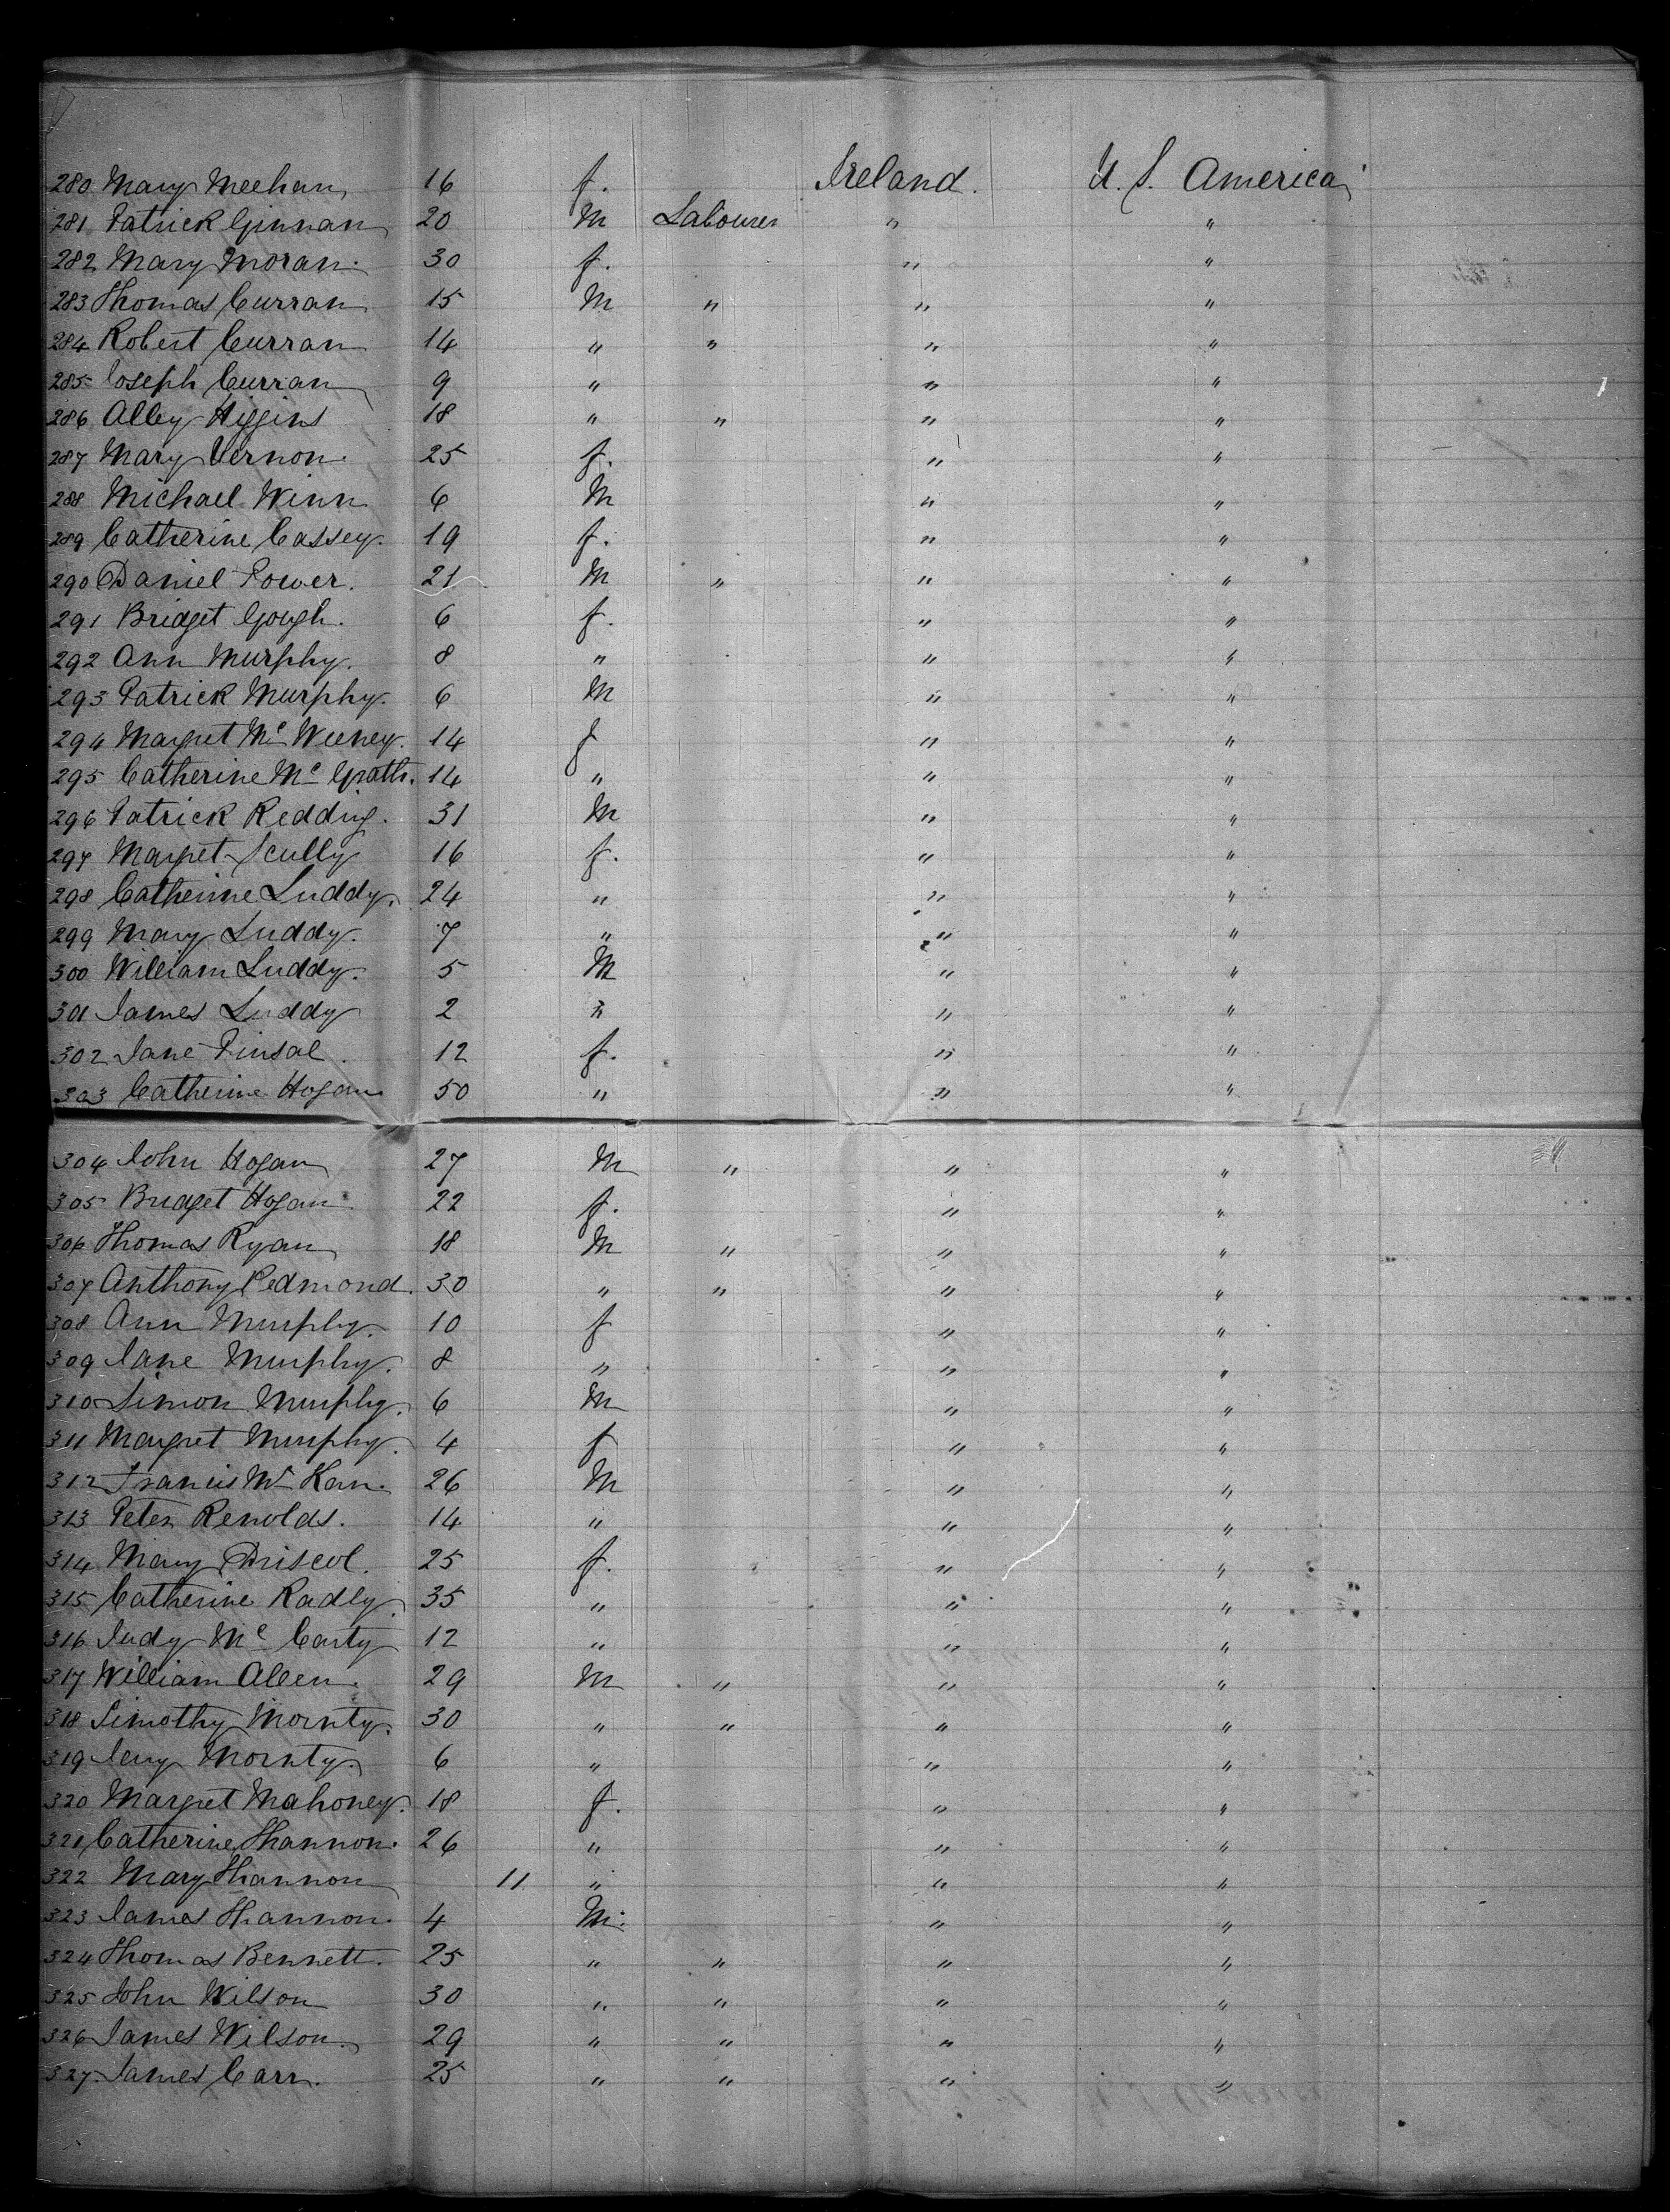 280 Mary Meehan 16 f. Ireland. U. S. America
281 Patrick Ginnan 20 M Labourer " "
282 Mary Moran. 30 f. " "
283 Thomas Curran 15 M " " "
284 Robert Curran 14 " " " "
285 Joseph Curran 9 " " "
286 Alley Higgins 18 " " " "
287 Mary Vernon. 25 f. " "
288 Michael Winn 6 M " "
289 Catherine Cassey. 19 f. " "
290 Daniel Power. 21 M " " "
291 Bridget Gough. 6 f. " "
292 Ann Murphy. 8 " " "
293 Patrick Murphy. 6 M " "
294 Margret Mc Weeney. 14 f " "
295 Catherine Mc Grath. 14 " " "
296 Patrick Redding. 31 M " "
297 Margret Scully 16 f. " "
298 Catherine Luddy. 24 " " "
299 Mary Luddy. 7 " " "
300 William Luddy. 5 M " "
301 James Luddy 2 " " "
302 Jane Pinsal. 12 f. " "
303 Catherine Hogan 50 " " "
304 John Hogan 27 M " " "
305 Bridget Hogan. 22 f. " "
306 Thomas Ryan 18 M " " "
307 Anthony Redmond. 30 " " " "
308 Ann Murphy. 10 f " "
309 Jane Murphy. 8 " " "
310 Simon Murphy. 6 M " "
311 Margret Murphy. 4 f " "
312 Francis Mc Kan. 26 M " "
313 Peter Renolds. 14 " " "
314 Mary Driscol. 25 f. " "
315 Catherine Radly. 35 " " "
316 Judy Mc Carty 12 " " "
317 William Allen. 29 M " " "
318 Timothy Mornty. 30 " " " "
319 Jery Mornty. 6 " " "
320 Margret Mahoney. 18 f. " "
321 Catherine Shannon. 26 " " "
322 Mary Shannon 11 " " "
323 James Shannon. 4 M. " "
324 Thomas Bennett. 25 " " " "
325 John Wilson 30 " " " "
326 James Wilson. 29 " " " "
327 James Carr. 25 " " " "